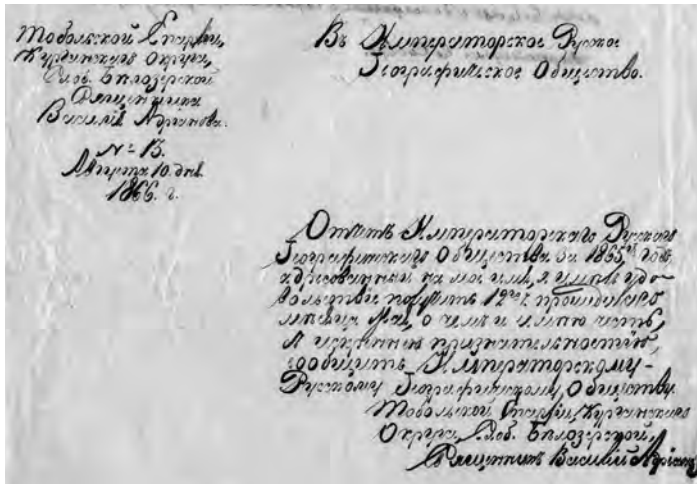 Тобольской Епархіи,
Курганскаго Округа,
Слоб. Бѣлозерской
Священника
Василія Адріанова.
№ 13.
Августа 10. дня.
1866. г.
Въ Императорское Русское
Географическое Общество.
Отчетъ Императорскаго Русскаго
Географическаго Общества за 1865й годъ,
адресованный на мое имя, я имѣлъ удо-
вольствіе получить 12го ч. прошедшаго
мѣсяца Мая, о чемъ и имѣю честь,
съ признательностію,
сообщить Императорскому-
Русскому Географическому Обществу.
Тобольской Епархіи, Курганскаго
Округа, Слоб. Бѣлозерской,
Священникъ Василій Адріановъ